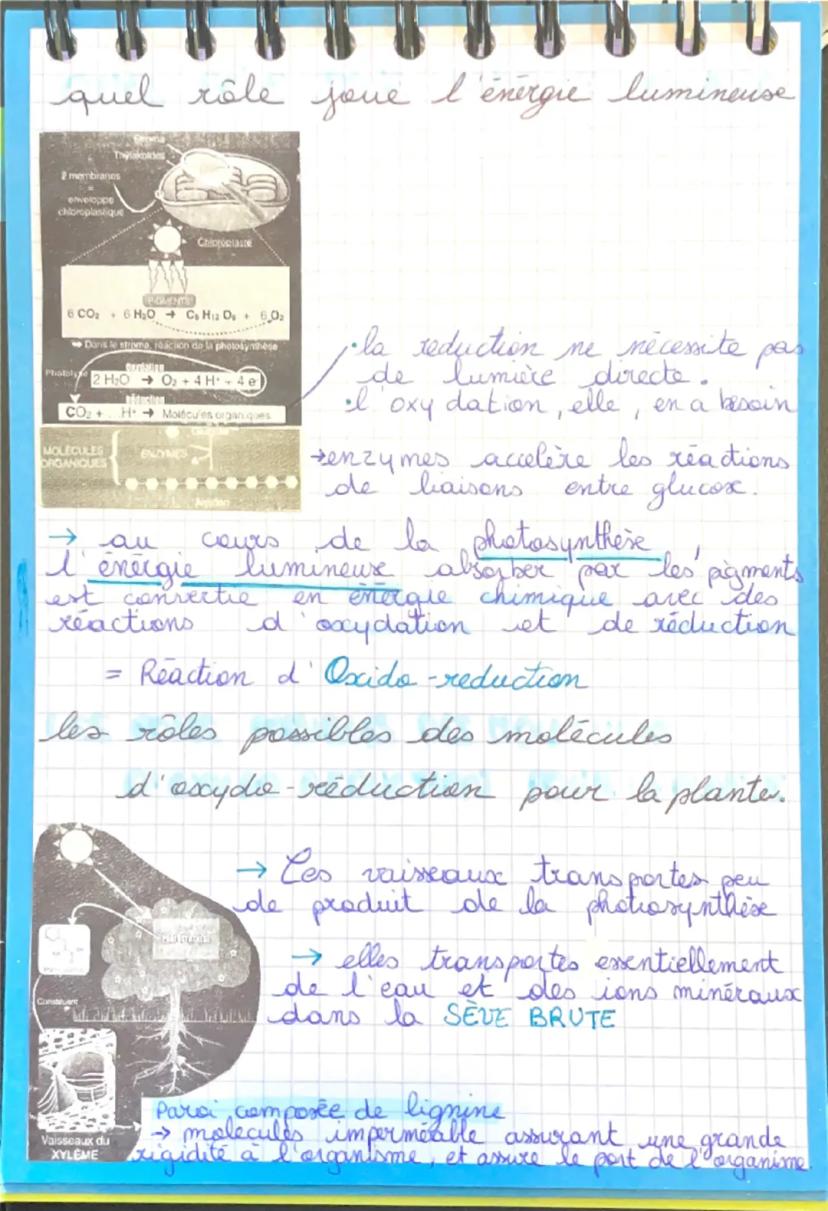 quel rôle joue l'énergie lumineuse
Stroma
Thylakoïdes
2 membranes
=
enveloppe
chloroplastique
Chloroplaste
PIGMENTS
6 CO₂ + 6 H₂O → C₆ H₁₂ O₆ + 6 O₂
➡ Dans le stroma, réaction de la photosynthèse
oxydation
Photolyse 2 H₂O → O₂ + 4 H⁺ + 4 e⁻
réduction
CO₂ + ... H⁺ → Molécules organiques
• la reduction ne nécessite pas
de lumière directe.
• l'oxydation, elle, en a besoin
MOLÉCULES
ORGANIQUES
ENZYMES
→ enzymes accelère les réactions
de liaisons entre glucose.
→ au cours de la photosynthèse,
l'énergie lumineuse absorber par les pigments
est convertie en énergie chimique avec des
réactions d'oxydation et de réduction
= Réaction d'Oxido-reduction
les rôles possibles des molécules
d'oxydo-réduction pour la plante.
→ Ces vaisseaux transportes peu
de produit de la photosynthèse
→ elles transportes essentiellement
de l'eau et des ions minéraux
dans la SÈVE BRUTE
Construent
Vaisseaux du
XYLÈME
Paroi composée de lignine
→ molécules imperméable assurant une grande
rigidité à l'organisme, et assure le port de l'organime.